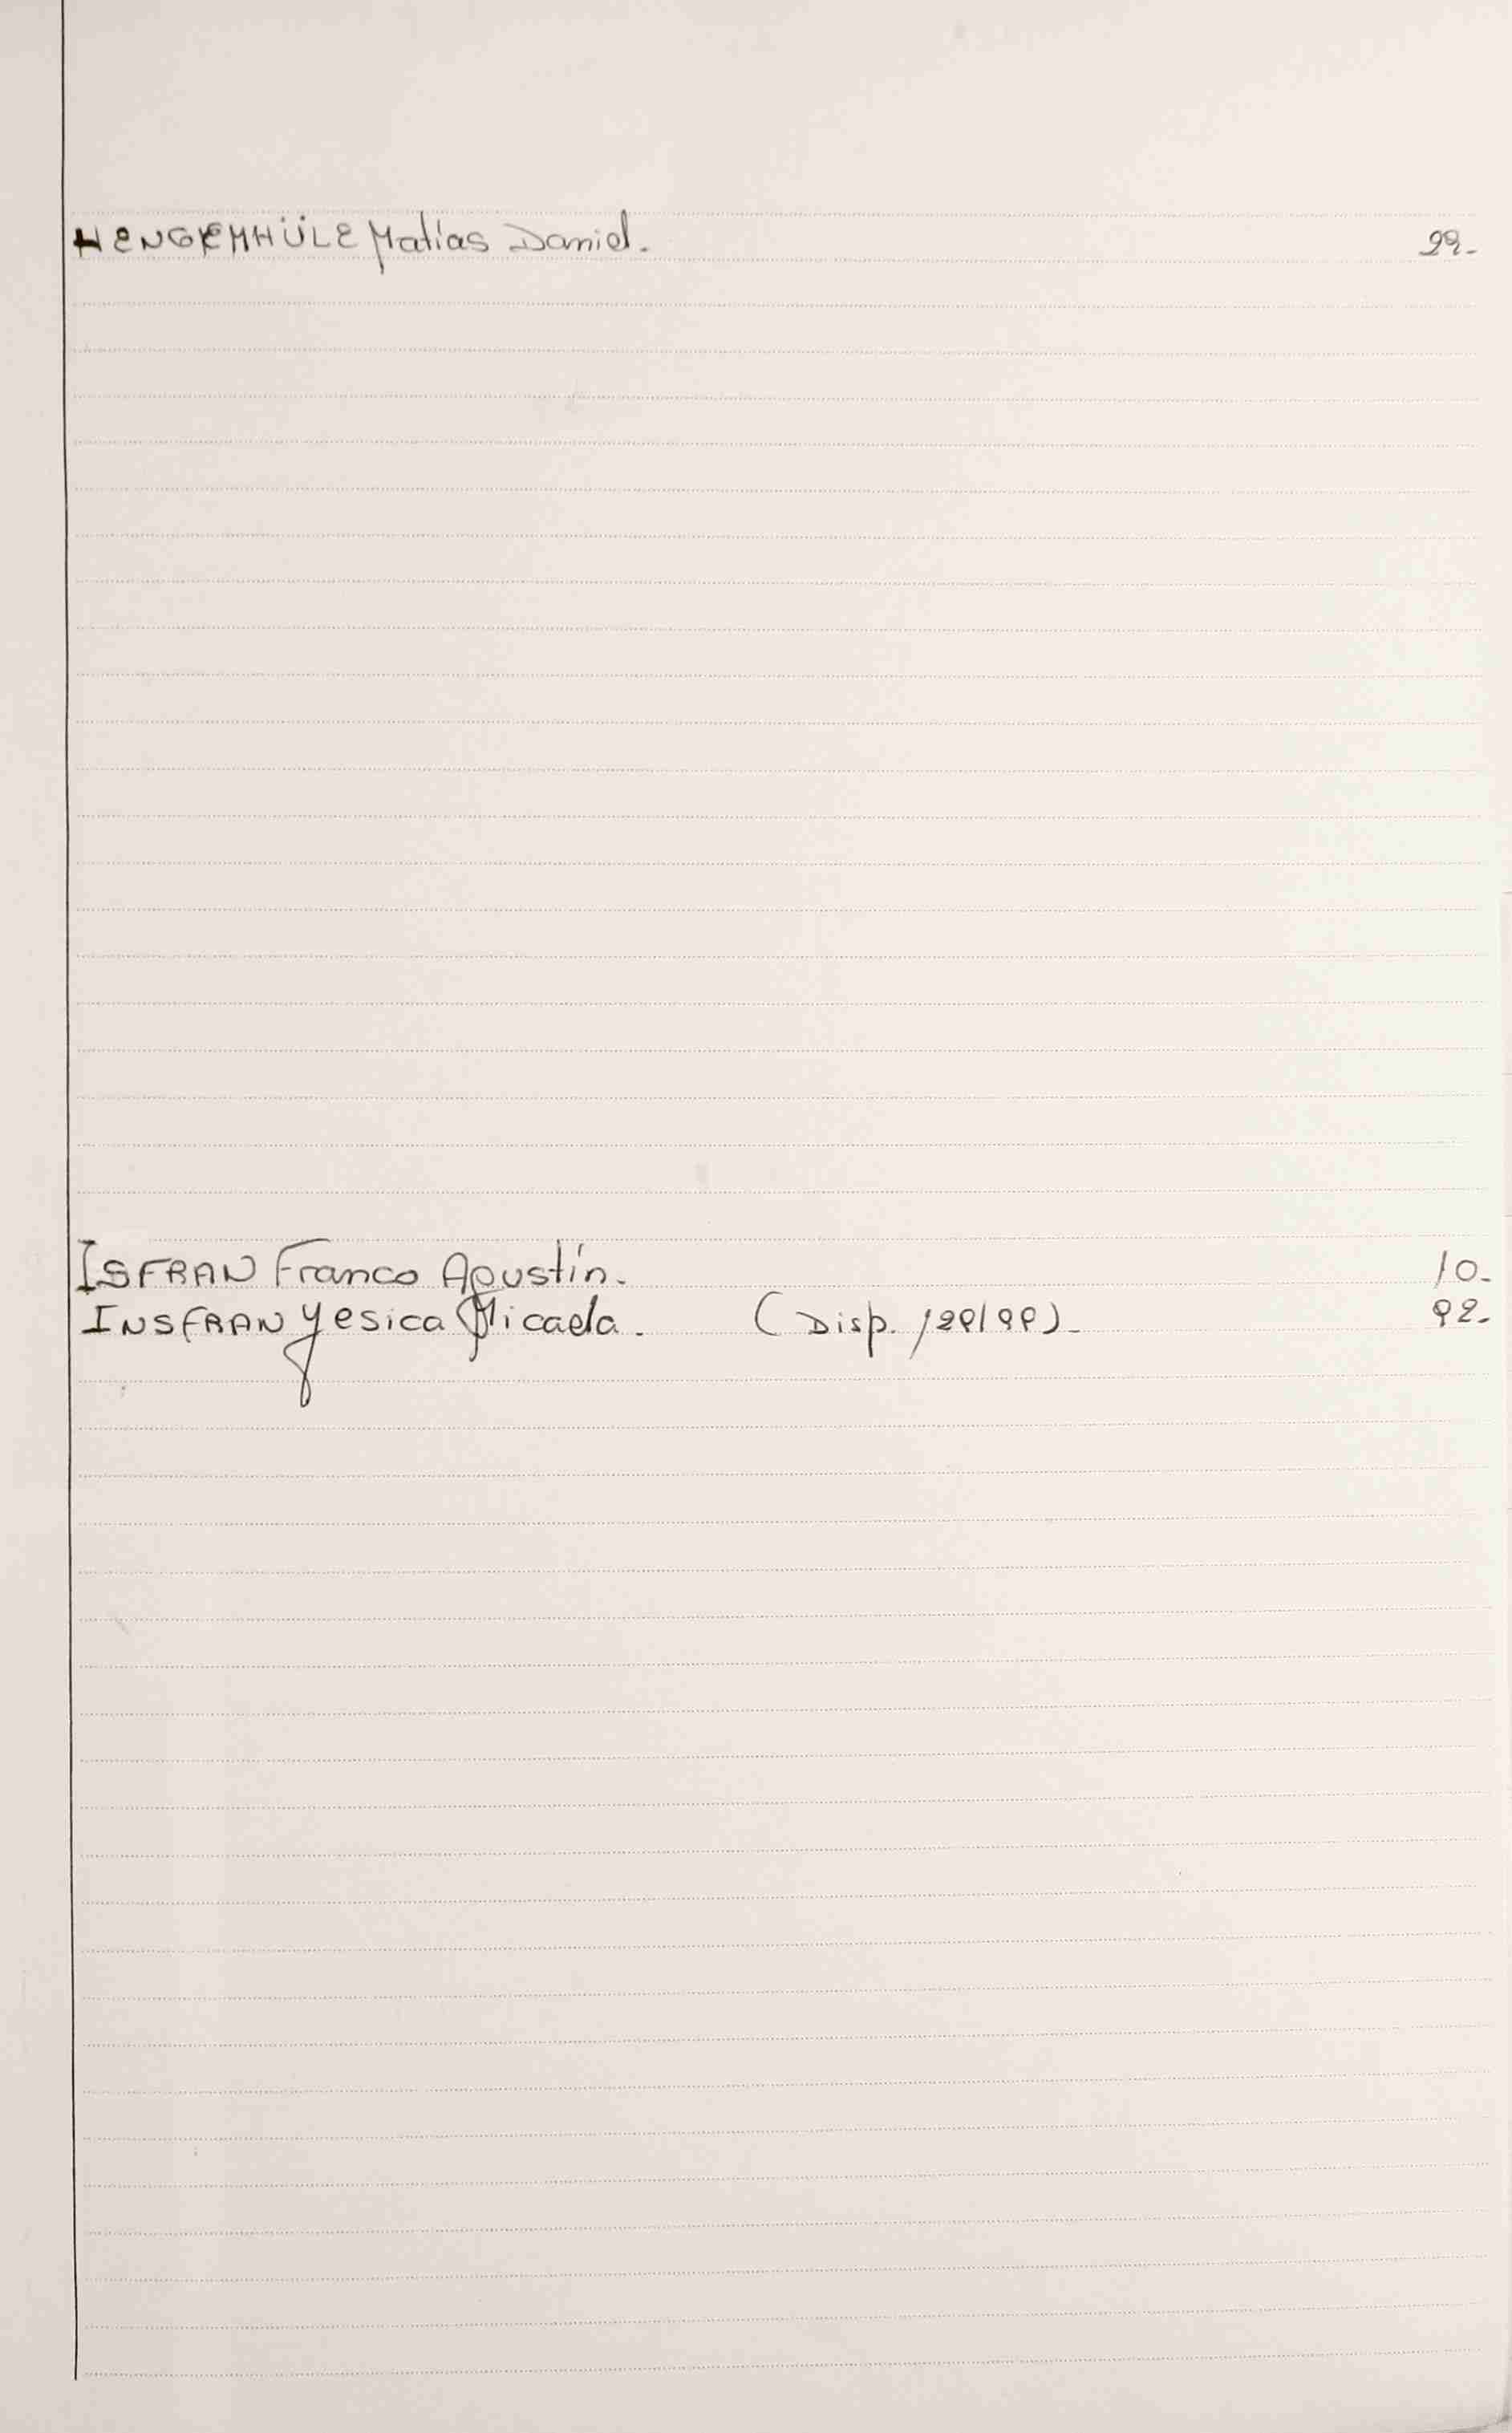 HENGKEMHÜLE Matías Daniel. 29.-
ISFRAN Franco Agustín. 10.-
INSFRAN Yesica Micaela. (Disp. 129/99).- 92.-